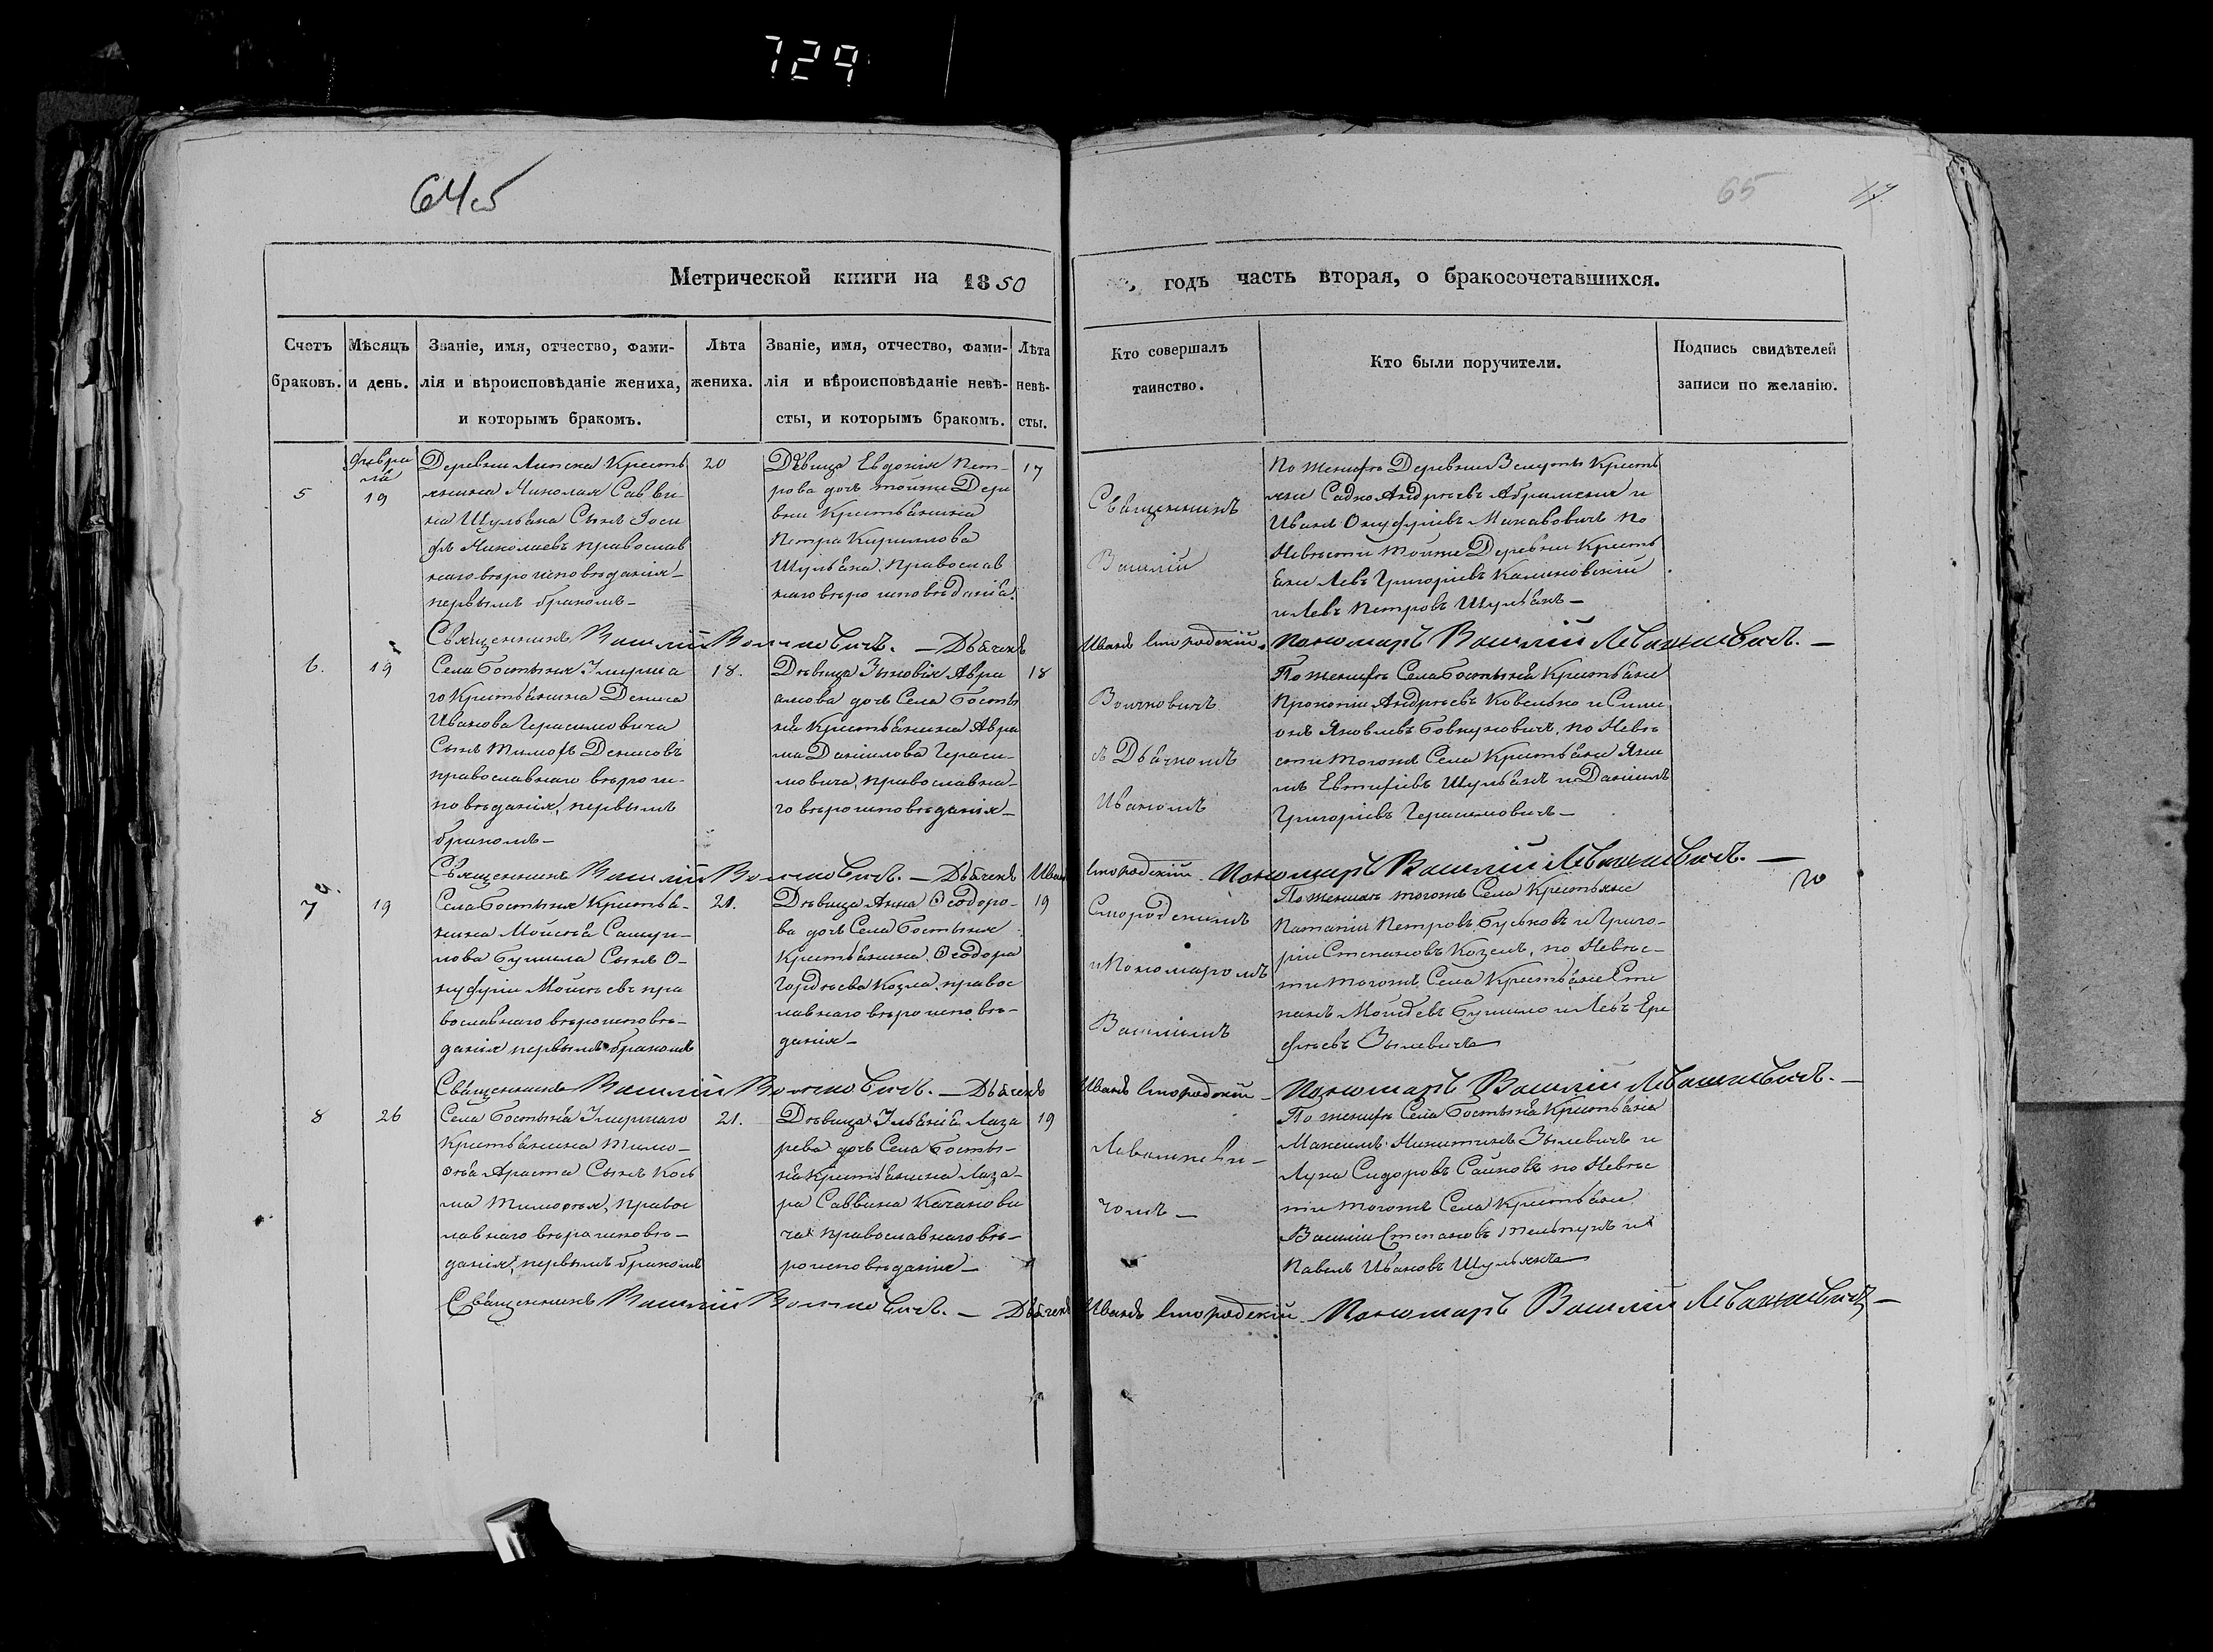 729
64 об
65
Метрической книги на 1850
годъ часть вторая, о бракосочетавшихся.
Счетъ браковъ.
Мѣсяцъ и день.
Званіе, имя, отчество, фами-
лія и вѣроисповѣданіе жениха,
и которымъ бракомъ.
Лѣта
жениха.
Званіе, имя, отчество, фами-
лія и вѣроисповѣданіе невѣ-
сты, и которымъ бракомъ.
Лѣта
невѣ-
сты.
Кто совершалъ
таинство.
Кто были поручители.
Подпись свидѣтелей
записи по желанію.
5
Февра
ля
19
Деревни Липска Кресть
янина Николая Савви
на Шульвана Сынъ Іоси
фъ Николаевъ православ
наго вѣроисповѣданія
первымъ бракомъ
20
Дѣвица Евдокія Пет-
рова дочь тойже Дере
вни Крестьянина
Петра Кириллова
Шульвана, Православ
наго вѣроисповѣданія.
17
Священникъ
Василій
По женихѣ Деревни Кресть
яне Андреевъ и
Иванъ Онуфріевъ по
Невѣстѣ тойже Деревни Кресть
яне Левъ Григоріевъ Калиновскій
и Левъ Петровъ Шульванъ
Священникъ Василій Волчковичъ. — Дьячекъ
Иванъ Смородскій. Пономарь Василій
6.
19
Села Гостыня Имрина
го Крестьянина Дениса
Иванова Герасимовича
Сынъ Тимофъ Денисовъ
православнаго вѣроис-
повѣданія, первымъ
бракомъ
18.
Дѣвица Зыновія Авра
амова дочь Села Госты
ня Крестьянина Авра
ма Даніилова Гераси-
мовича, православна-
го вѣроисповѣданія
18
Волчковичъ
съ Дьячкомъ
Иваномъ
По женихѣ Села Гостыня Крестьяне
Прокопій Андреевъ Ковелько и Сими
онъ Яковлевъ по Невѣ
стѣ тогожъ Села Крестьяне Яки
мъ Евтифіевъ Шульванъ и Даніилъ
Григоріевъ Герасимовичъ
Священникъ Василій Волчковичъ. — Дьячекъ Иванъ
Смородскій. Пономарь Василій
7
19
Села Гостыня Крестья-
нина Мойсея Самуи-
лова Бушила Сынъ О-
нуфрій Мойсеевъ пра
вославнаго вѣроисповѣ-
данія первымъ бракомъ
21.
Дѣвица Анна Ѳеодоро-
ва дочь Села Гостыня
Крестьянина Ѳеодора
Гордѣева Козла, правос
лавнаго вѣроисповѣ-
данія
19
Смородскимъ
и Пономаромъ
Василіимъ
По женихѣ тогожъ Села Крестьяне
Петровъ и Григо-
рій Степановъ Козелъ, по Невѣс-
тѣ тогожъ Села Крестьяне Сте
панъ Бушило и Левъ Ере
Зылевичъ
Священникъ Василій Волчковичъ. — Дьячекъ
Иванъ Смородскій Пономарь Василій
8
26
Села Гостыня Имрннаго
Крестьянина Тимо-
ѳея Сынъ Кось
ма Тимофея, Правос
лавнаго вѣроисповѣ-
данія, первымъ бракомъ
21.
Дѣвица Ульянія Лаза
рева дочь Села Госты-
ня Крестьянина Лаза-
ря Саввина Качанови
ча православнаго вѣ-
роисповѣданія
19
чомъ
По женихѣ Села Гостыня Крестьяне
Максимъ Никитинъ Зылевичъ и
Лука Сидоровъ по Невѣс
тѣ тогожъ Села Крестьяне
Василій Степановъ и
Павелъ Ивановъ Шульванъ
Священникъ Василій Волчковичъ. — Дьячекъ
Иванъ Смородскій Пономарь Василій